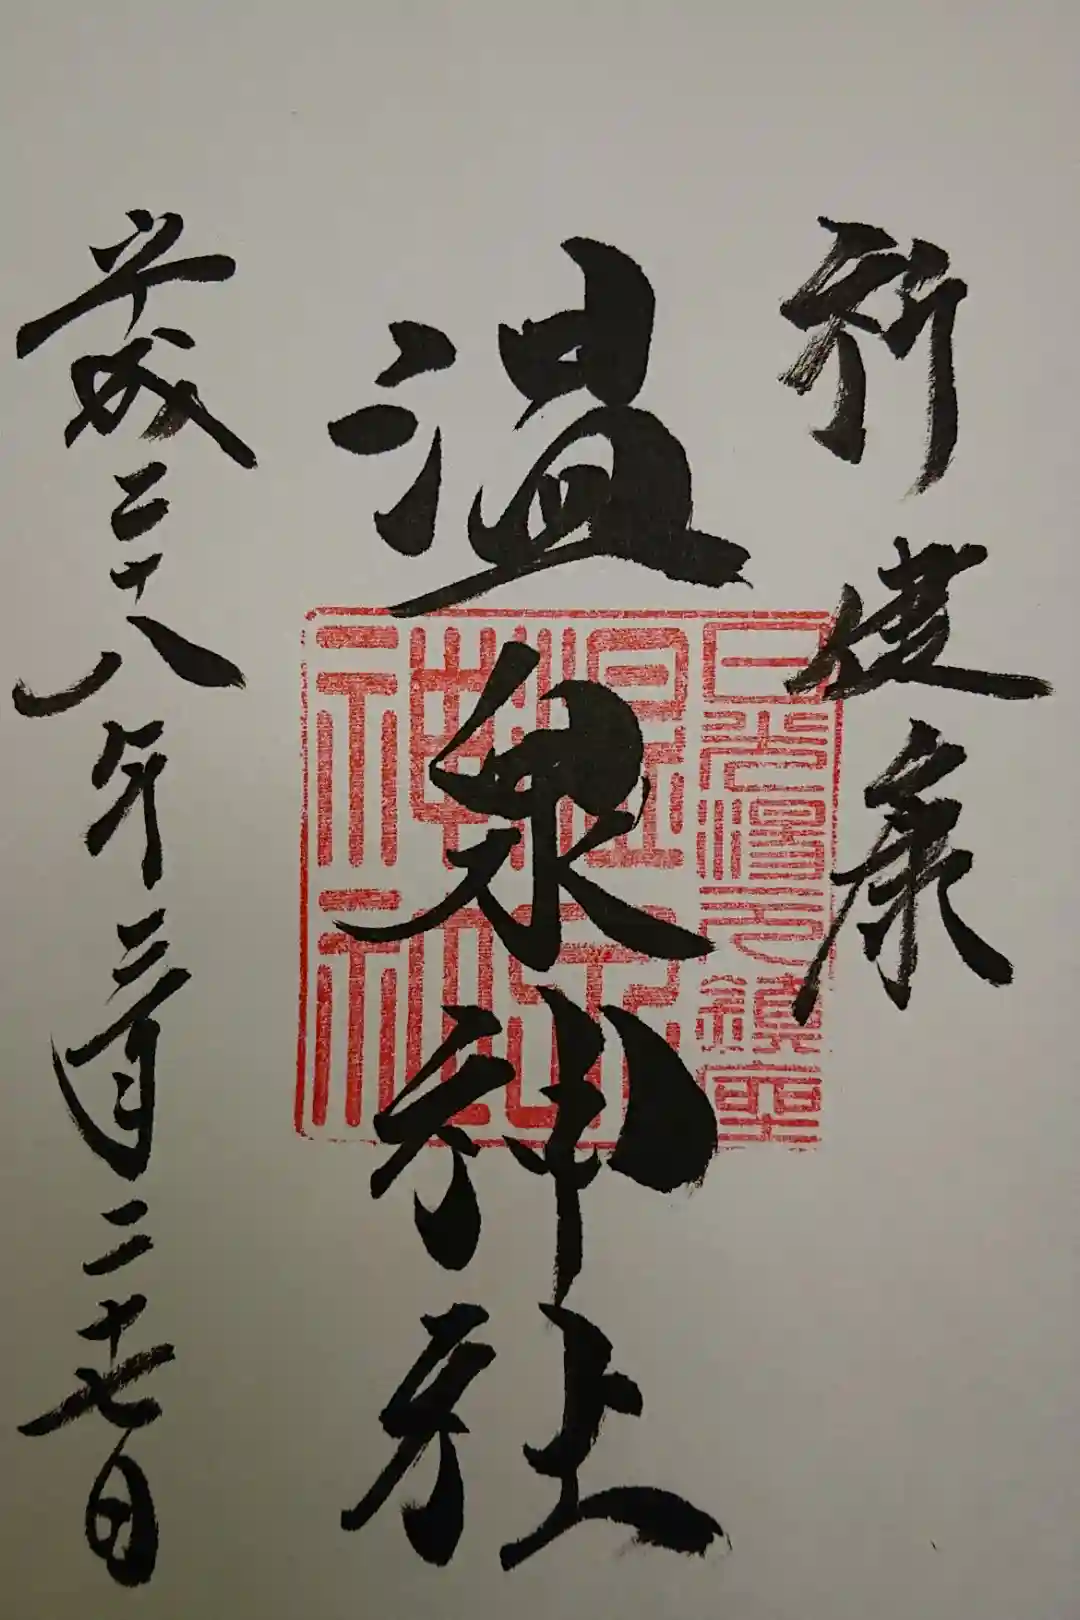 祈健康
温泉神社
平成二十八年三月二十七日
日光湯元鎮座
温泉
神社